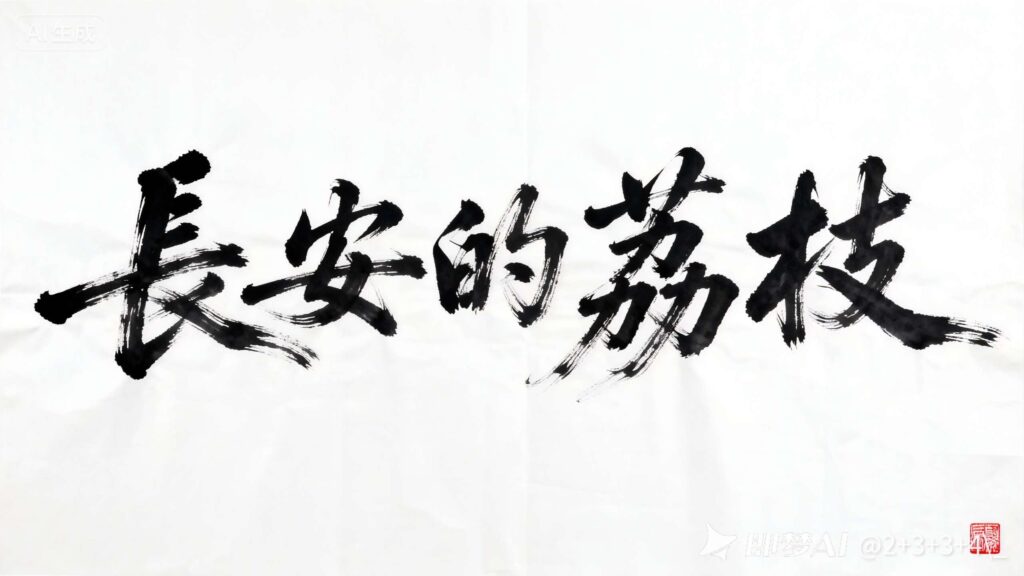 AI生成
長安的荔枝
即夢AI @2+3+3+4_